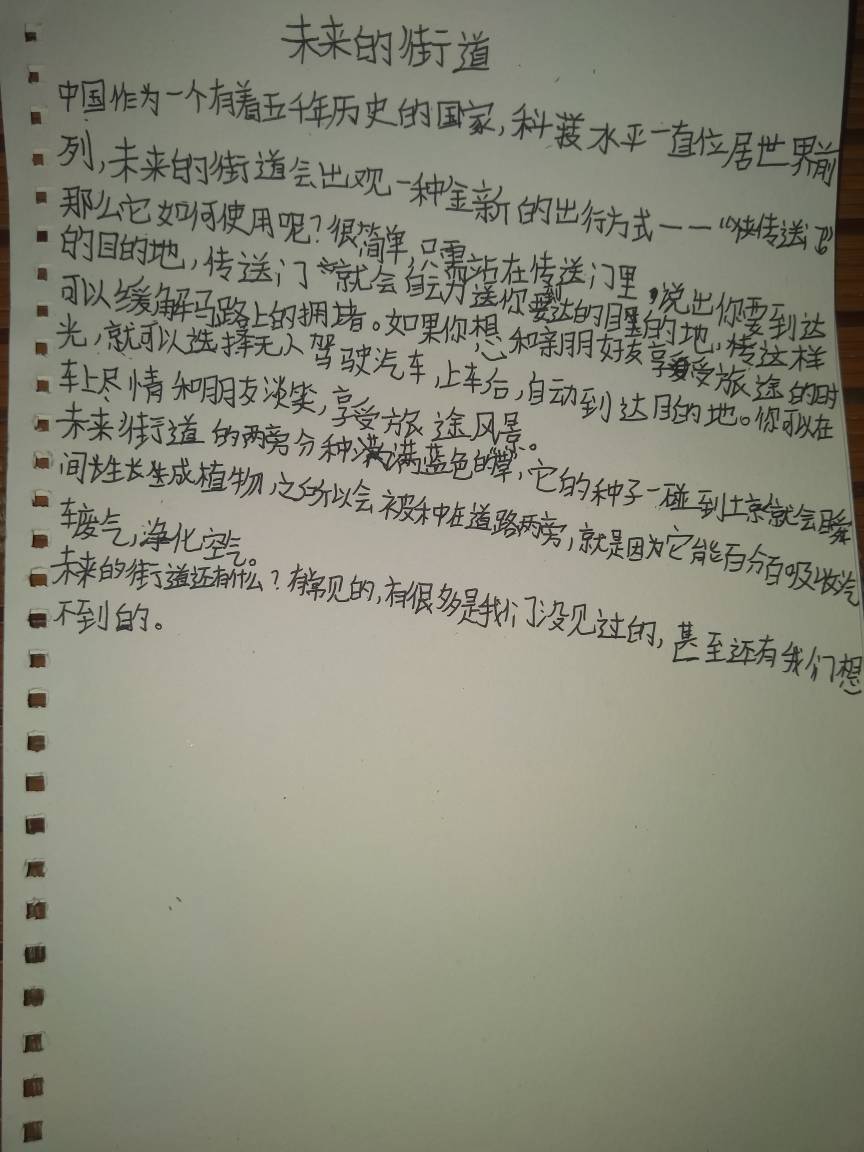 未来的街道
中国作为一个有着五千年历史的国家,科技水平一直位居世界前
列,未来的街道会出观一种全新的出行方式——“快传送门”
那么它如何使用呢?很简单,只需站在传送门里,说出你要到达
的目的地,传送门就会自动送你到要达的目的地,这样
可以缓解马路上的拥堵。如果你想和亲朋好友享受旅途的时
光,就可以选择无人驾驶汽车,上车后,自动到达目的地。你可以在
车上尽情和朋友谈笑,享受旅途风景。
未来街道的两旁分种满蓝色的草,它的种子一碰到土壤就会瞬
间生长生成植物,之所以会被种在道路两旁,就是因为它能百分百吸收汽
车废气,净化空气。
未来的街道还有什么?有常见的,有很多是我们没见过的,甚至还有我们想
不到的。